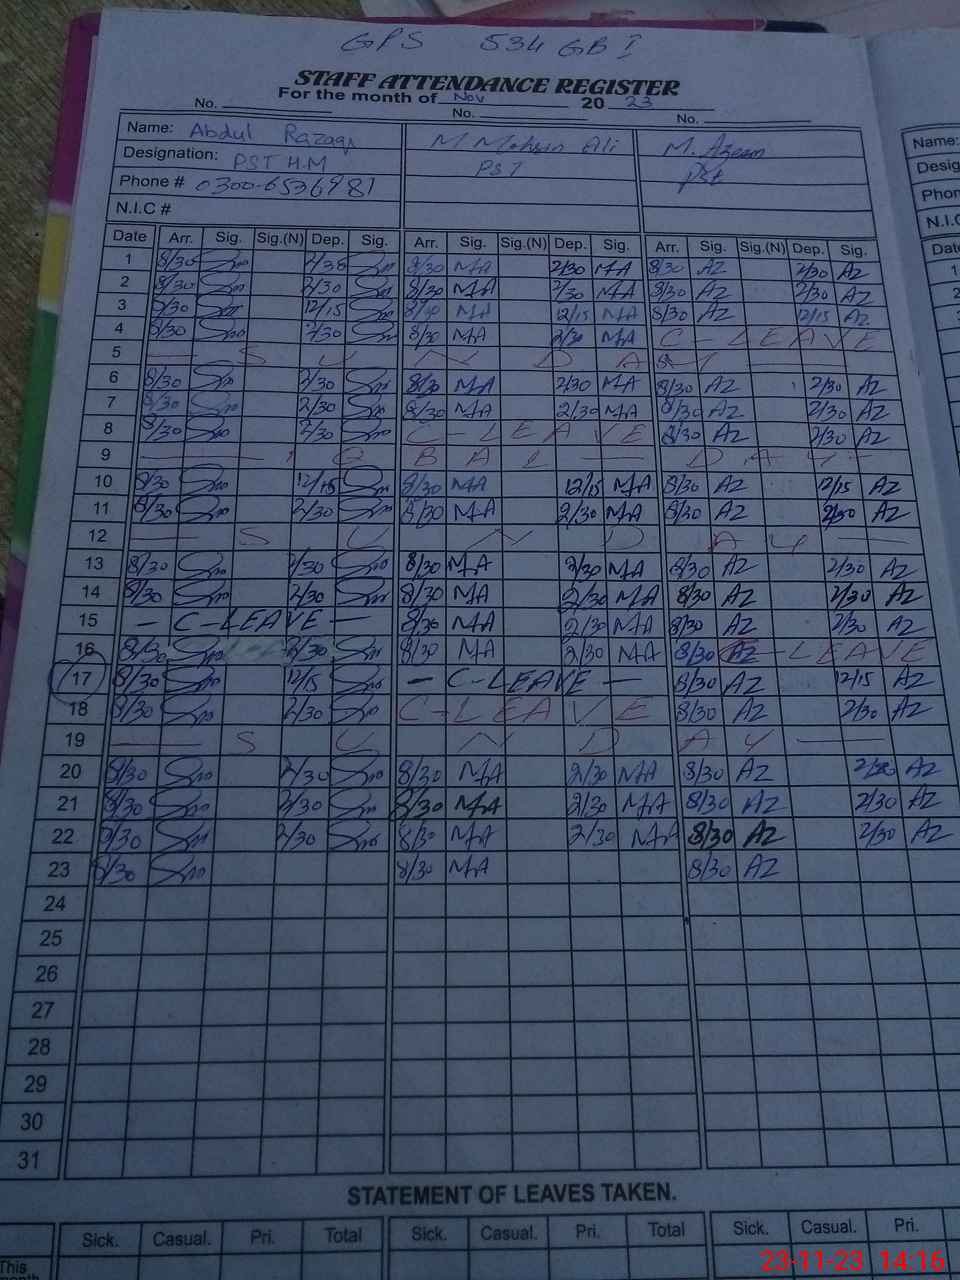 GPS 534 GB I
STAFF ATTENDANCE REGISTER
For the month of Nov 20 23
No. No. No.
Name: Abdul Razaq M Mohsin Ali M. Azeem
Designation: PST H.M PST Pst
Phone # 0300-6536981
N.I.C #
Date Arr. Sig. Sig.(N) Dep. Sig. Arr. Sig. Sig.(N) Dep. Sig. Arr. Sig. Sig.(N) Dep. Sig.
1 8/30 2/30 8/30 MA 2/30 MA 8/30 AZ 2/30 AZ
2 8/30 2/30 8/30 MA 2/30 MA 8/30 AZ 2/30 AZ
3 8/30 12/15 8/30 MA 12/15 MA 8/30 AZ 12/15 AZ
4 8/30 2/30 8/30 MA 2/30 MA C-LEAVE
5 — SUNDAY —
6 8/30 2/30 8/30 MA 2/30 MA 8/30 AZ 2/30 AZ
7 8/30 2/30 8/30 MA 2/30 MA 8/30 AZ 2/30 AZ
8 8/30 2/30 C-LEAVE 8/30 AZ 2/30 AZ
9 — IQBAL — DAY —
10 8/30 12/15 8/30 MA 12/15 MA 8/30 AZ 12/15 AZ
11 8/30 2/30 8/30 MA 2/30 MA 8/30 AZ 2/30 AZ
12 — SUNDAY —
13 8/30 2/30 8/30 MA 2/30 MA 8/30 AZ 2/30 AZ
14 8/30 2/30 8/30 MA 2/30 MA 8/30 AZ 2/30 AZ
15 — C-LEAVE — 8/30 MA 2/30 MA 8/30 AZ 2/30 AZ
16 8/30 2/30 8/30 MA 2/30 MA 8/30 AZ C-LEAVE
17 8/30 12/15 — C-LEAVE — 8/30 AZ 12/15 AZ
18 8/30 2/30 C-LEAVE 8/30 AZ 2/30 AZ
19 — SUNDAY —
20 8/30 2/30 8/30 MA 2/30 MA 8/30 AZ 2/30 AZ
21 8/30 2/30 8/30 MA 2/30 MA 8/30 AZ 2/30 AZ
22 8/30 2/30 8/30 MA 2/30 MA 8/30 AZ 2/30 AZ
23 8/30 8/30 MA 8/30 AZ
24
25
26
27
28
29
30
31
STATEMENT OF LEAVES TAKEN.
Sick. Casual. Pri. Total Sick. Casual. Pri. Total Sick. Casual. Pri.
This
month
23-11-23 14:16
Name: